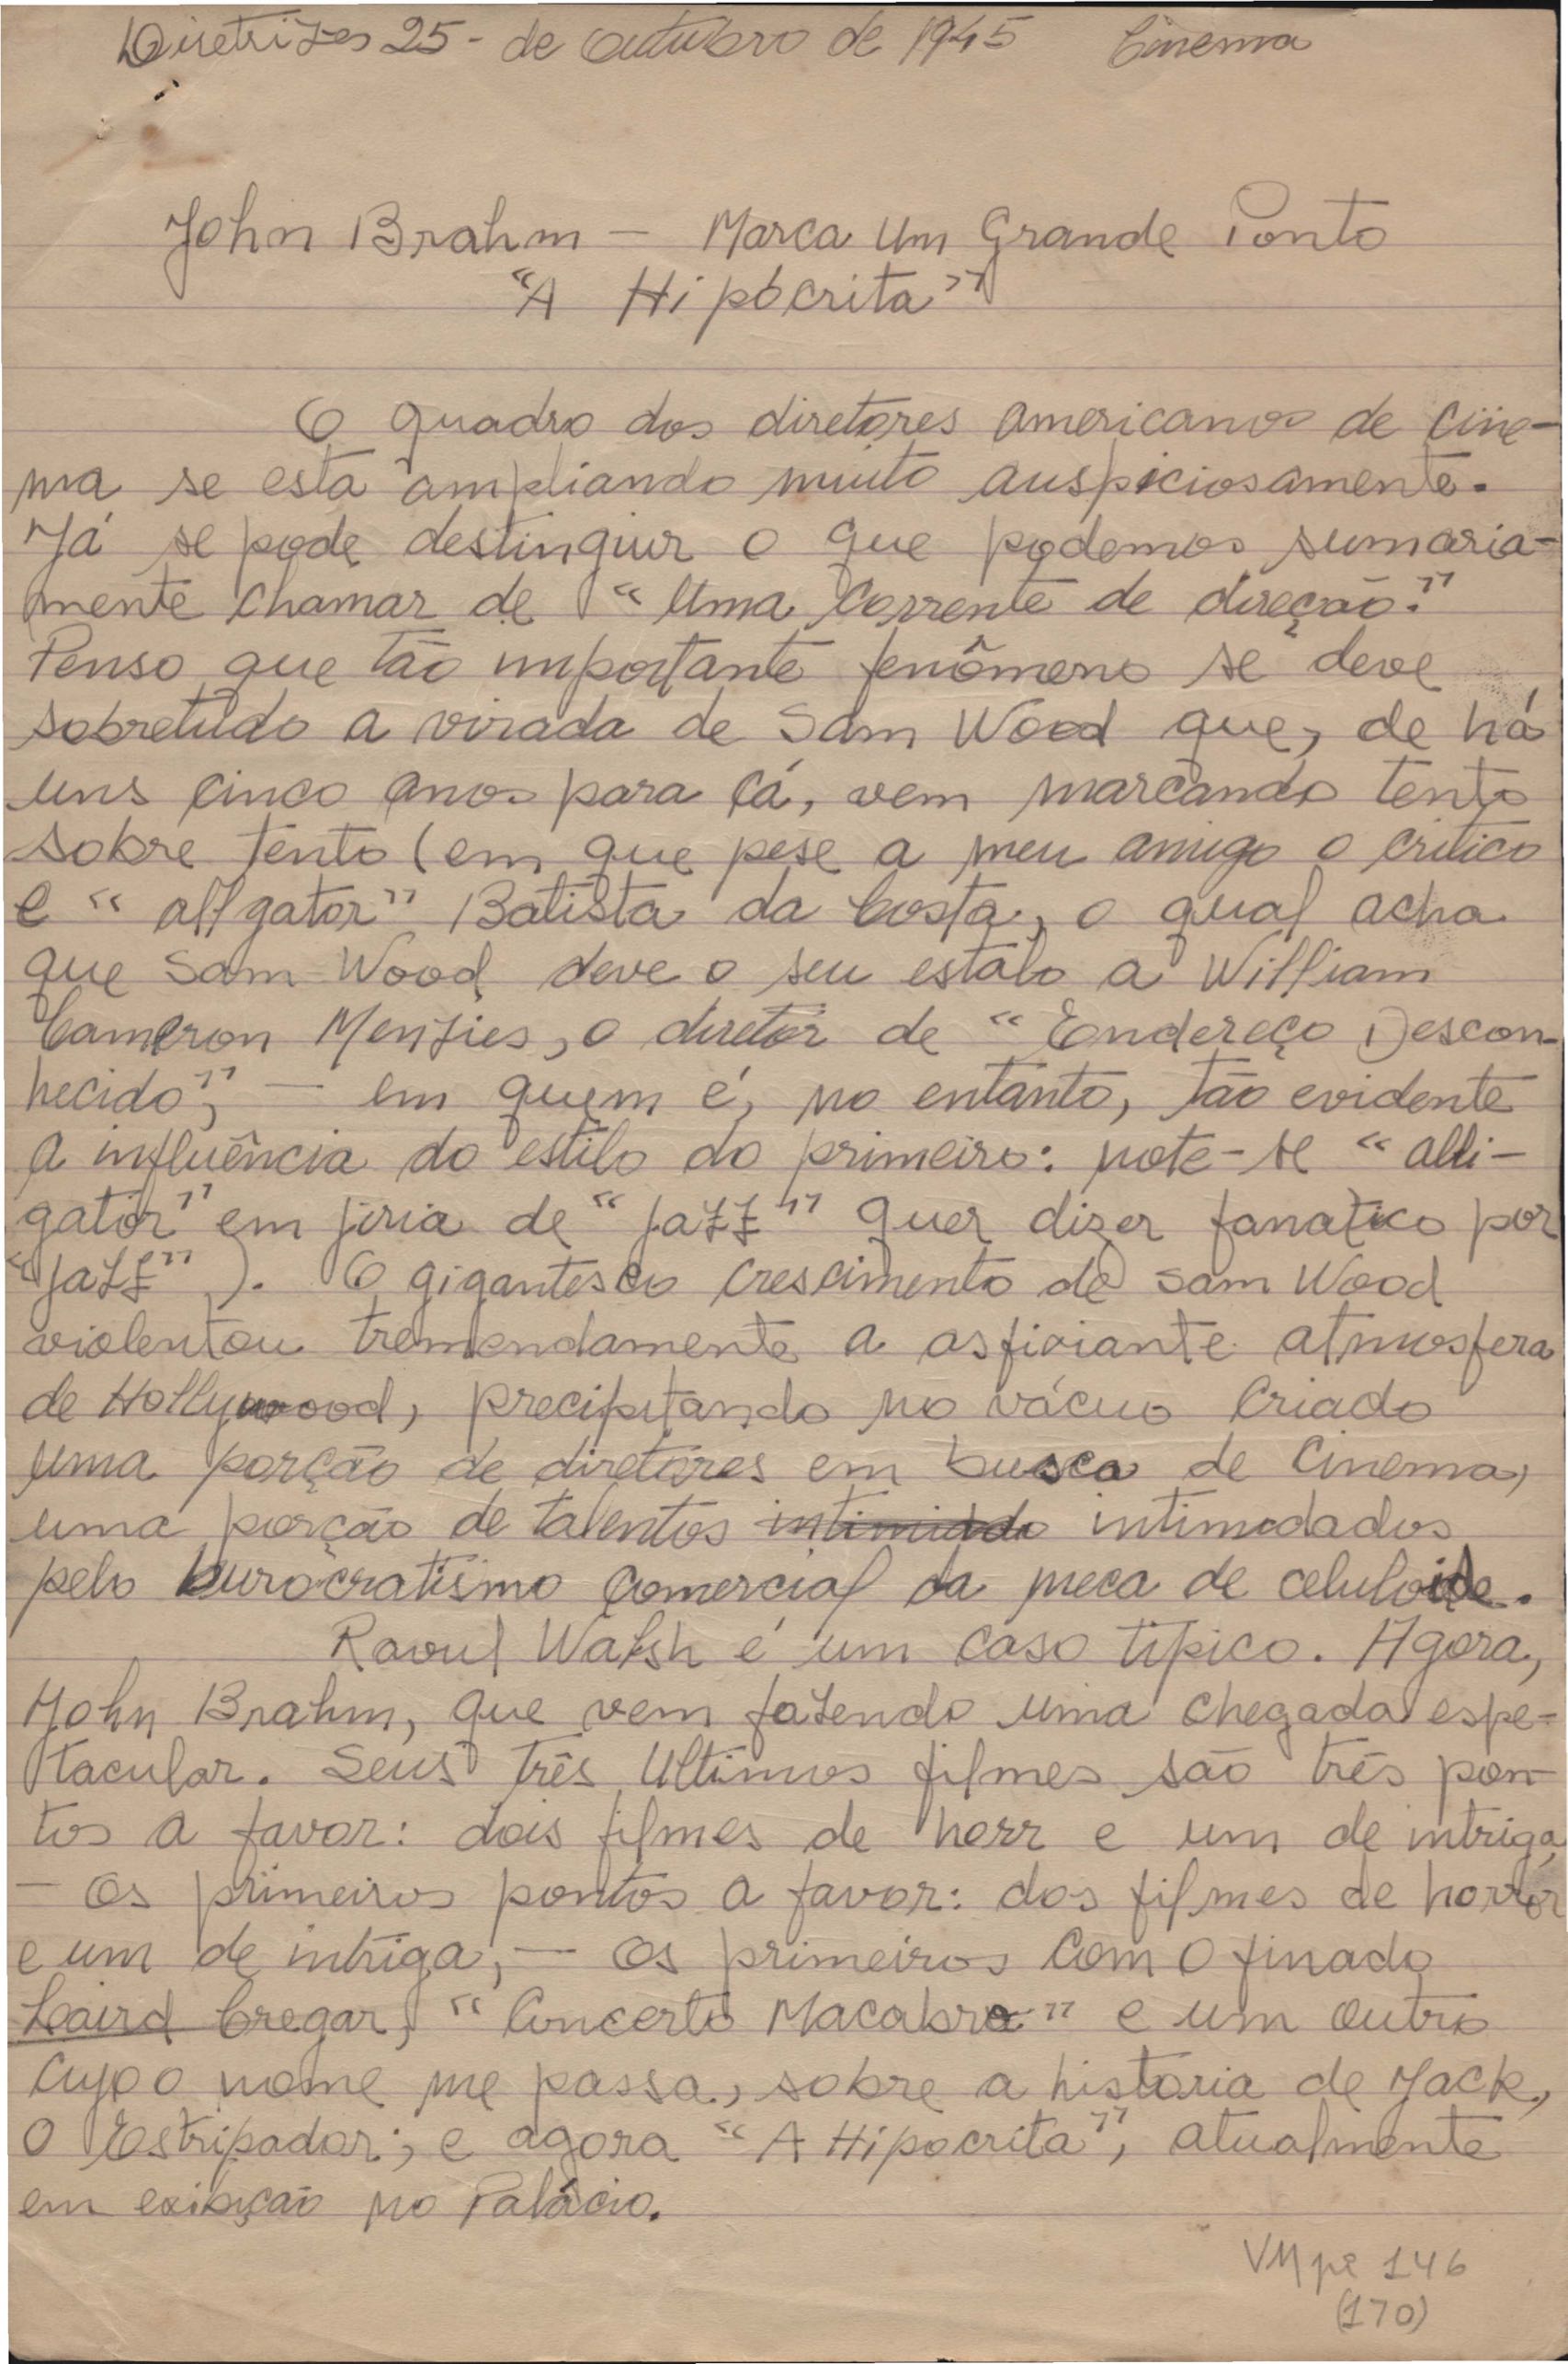 Diretrizes 25 - de Outubro de 1945 Cinema
John Brahm — Marca Um Grande Ponto
"A Hipócrita"
O quadro dos diretores americanos de cine-
ma se está ampliando muito auspiciosamente.
Já se pode destinguir o que podemos sumaria-
mente chamar de "Uma corrente de direção."
Penso que tão importante fenômeno se deve
sobretudo a virada de Sam Wood que, de há
uns cinco anos para cá, vem marcando tento
sobre tento (em que pese a meu amigo o critico
e "alligator" Batista da Costa, o qual acha
que Sam Wood deve o seu estalo a William
Cameron Menzies, o diretor de "Endereço Descon-
hecido", — em quem é, no entanto, tão evidente
a influência do estilo do primeiro: note-se "alli-
gator" em jiria de "jazz" quer dizer fanatico por
"jazz"). O gigantesco crescimento de Sam Wood
violentou tremendamente a asfixiante atmosfera
de Hollywood, precipitando no vácuo criado
uma porção de diretores em busca de cinema,
uma porção de talentos intimido intimidados
pelo burocratismo comercial da meca de celuloide.
Raoul Walsh é um caso tipico. Agora,
John Brahm, que vem fazendo uma chegada espe-
tacular. Seus três Ultimos filmes são três pon-
tos a favor: dois filmes de horr e um de intriga
— Os primeiros pontos a favor: dos filmes de horror
e um de intriga, — Os primeiros com o finado
Laird Cregar, "Concerto Macabro" e um outro
cujo o nome me passa, sobre a historia de Jack,
O Estripador; e agora "A Hipocrita", atualmente
em exibição no Palácio.
VMpi 146
(170)